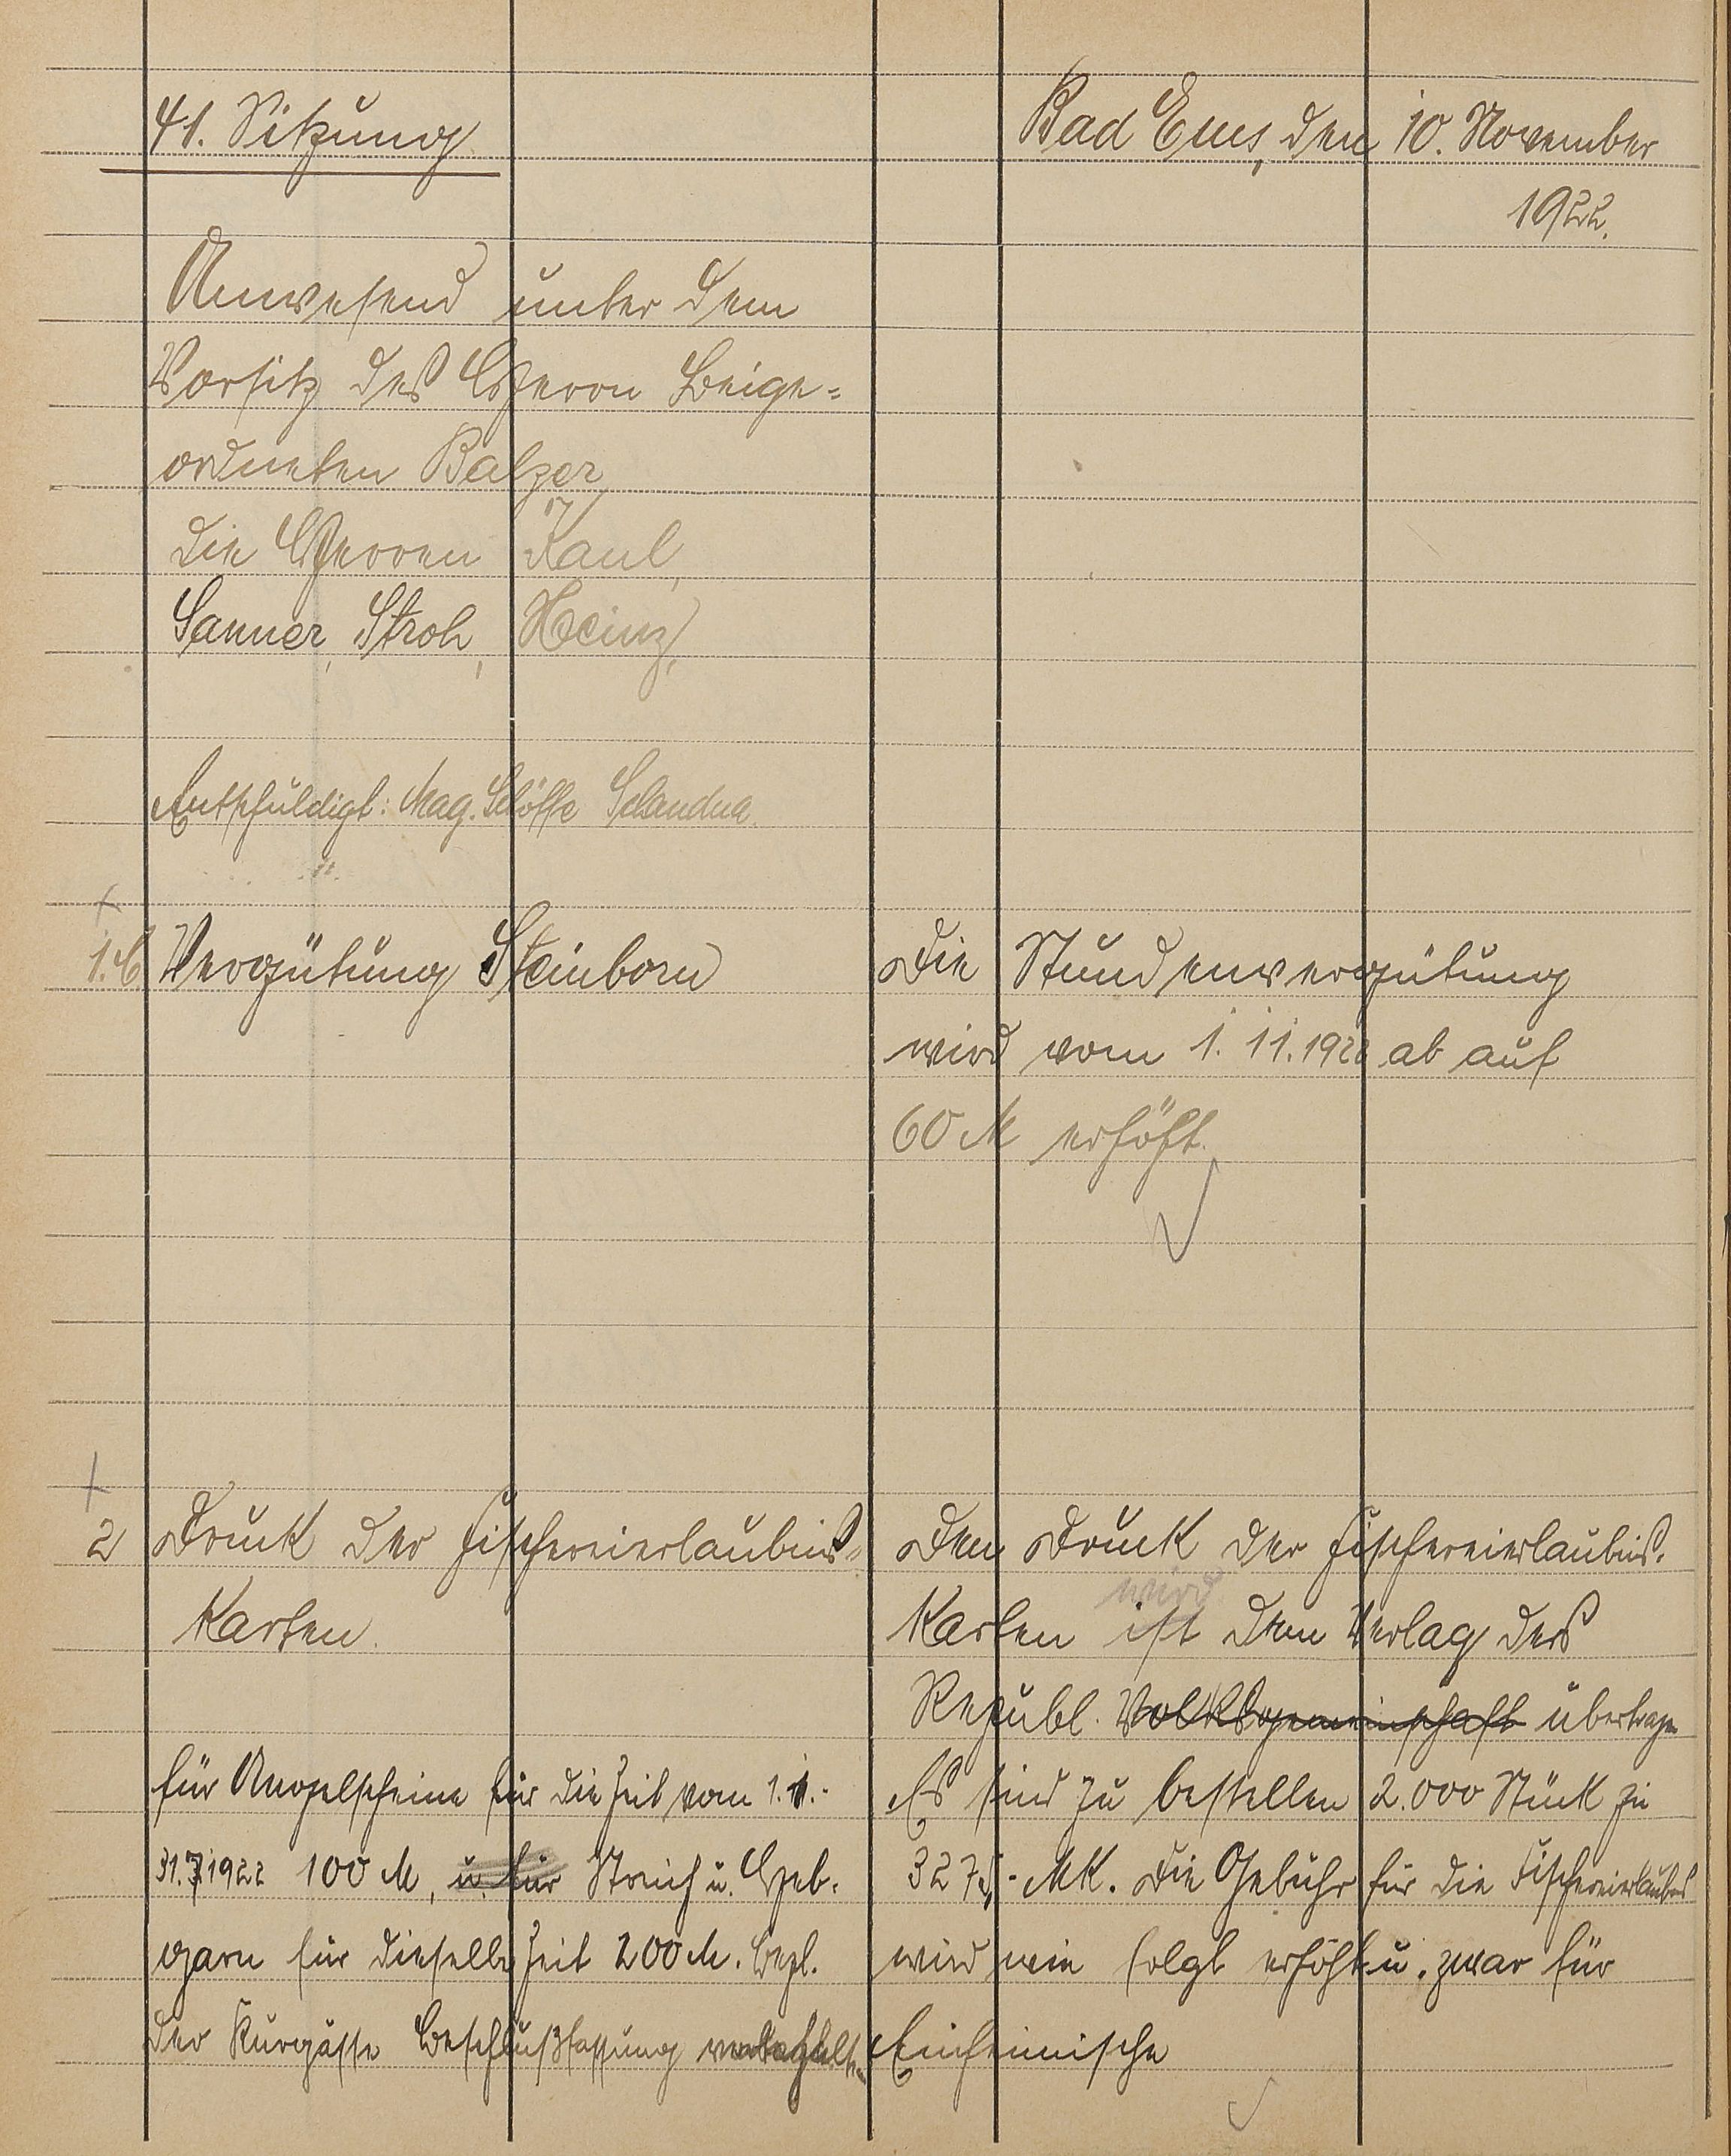 41. Sitzung
Bad Ems, den 10. November
1922.
Anwesend unter dem
Vorsitz des Herrn Beige-
ordneten Balzer
die Herren Kaul,
Sanner, Stroh, Heinz,
Entschuldigt: Mag. Schöffe
1.
Vergütung Steinborn
Die Stundenvergütung
wird vom 1. 11. 1922 ab auf
60 M erhöht.
2
Druck der Fischereierlaubnis-
Karten.
Den Druck der Fischereierlaubnis-
wird
Karten ist dem Verlag des
Republ. Volksgemeinschaft übertragen
Es sind zu bestellen 2.000 Stück zu
3275,- MK. Die Gebühr für die Fischereierlaubnis
wird wie folgt erhöht u. zwar für
Einheimische
für Angelscheine für die Zeit vom 1. 1.-
31.7.1922 100 M, u. für Streich u. Heb-
garn für dieselbe Zeit 200 M. bezl.
der Kurgäste Beschlußfassung vorbehalten